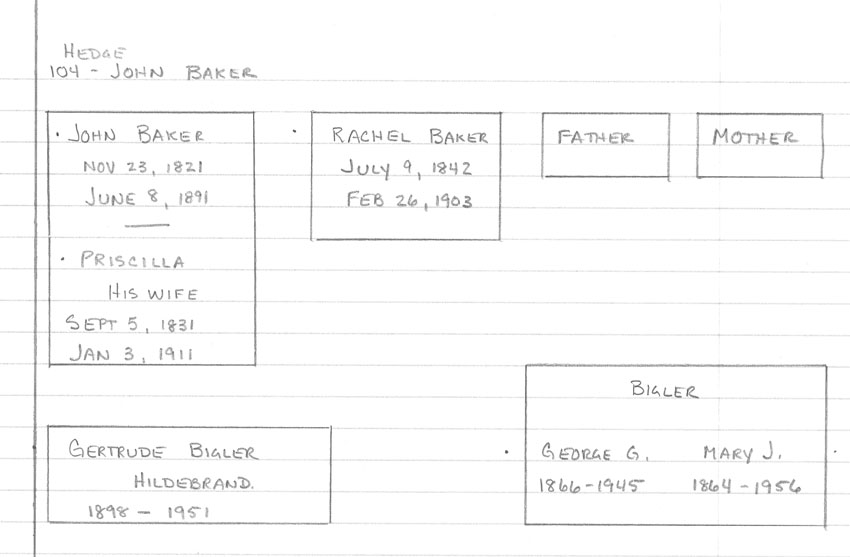 HEDGE
104 - JOHN BAKER
• JOHN BAKER
NOV 23, 1821
JUNE 8, 1891
• PRISCILLA
HIS WIFE
SEPT 5, 1831
JAN 3, 1911
• RACHEL BAKER
JULY 9, 1842
FEB 26, 1903
FATHER
MOTHER
GERTRUDE BIGLER
HILDEBRAND.
1898 - 1951
BIGLER
• GEORGE G. MARY J. •
1866-1945 1864-1956